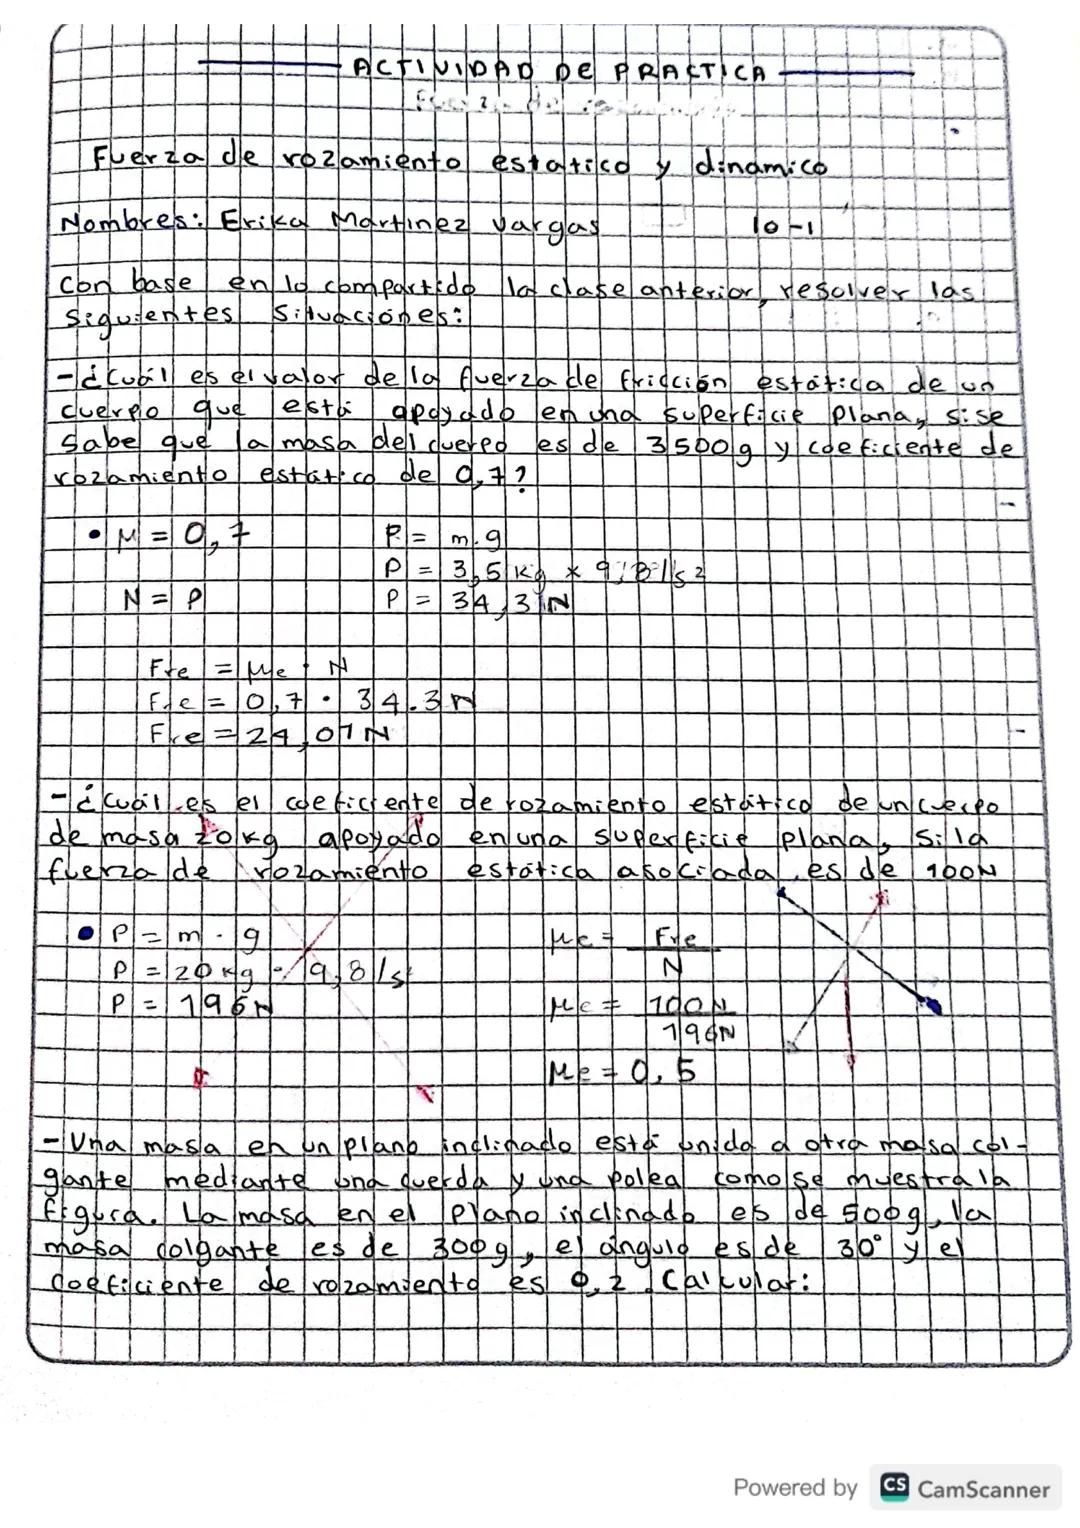 ACTIVIDAD DE PRACTICA
Fuerza de rozamiento estatico y dinamico
Nombres: Erika Martinez Vargas 10-1
con base en lo compartido la clase anterior, resolver las
siguientes situaciones:
- ¿Cuál es el valor de la fuerza de fricción estática de un
cuerpo que está apoyado en una superficie plana, si se
sabe que la masa del cuerpo es de 3500g y coeficiente de
rozamiento estático de 0,7?
• μ = 0,7 P = m.g
P = 3,5 kg x 9,8 /s²
N = P P = 34,3 N
Fre = μe • N
Fre = 0,7 • 34.3N
Fre = 24,01N
- ¿Cuál es el coeficiente de rozamiento estático de un cuerpo
de masa 20kg apoyado en una superficie plana, si la
fuerza de rozamiento estática asociada es de 100N
• P = m . g μe = Fre
P = 20 kg - 9,8 /s² N
P = 196N μe = 100N
196N
μe = 0,5
- Una masa en un plano inclinado está unida a otra masa col-
gante mediante una cuerda y una polea como se muestra la
figura. La masa en el plano inclinado es de 500g, la
masa colgante es de 300g, el ángulo es de 30° y el
coeficiente de rozamiento es 0,2. Calcular:
Powered by CS CamScanner